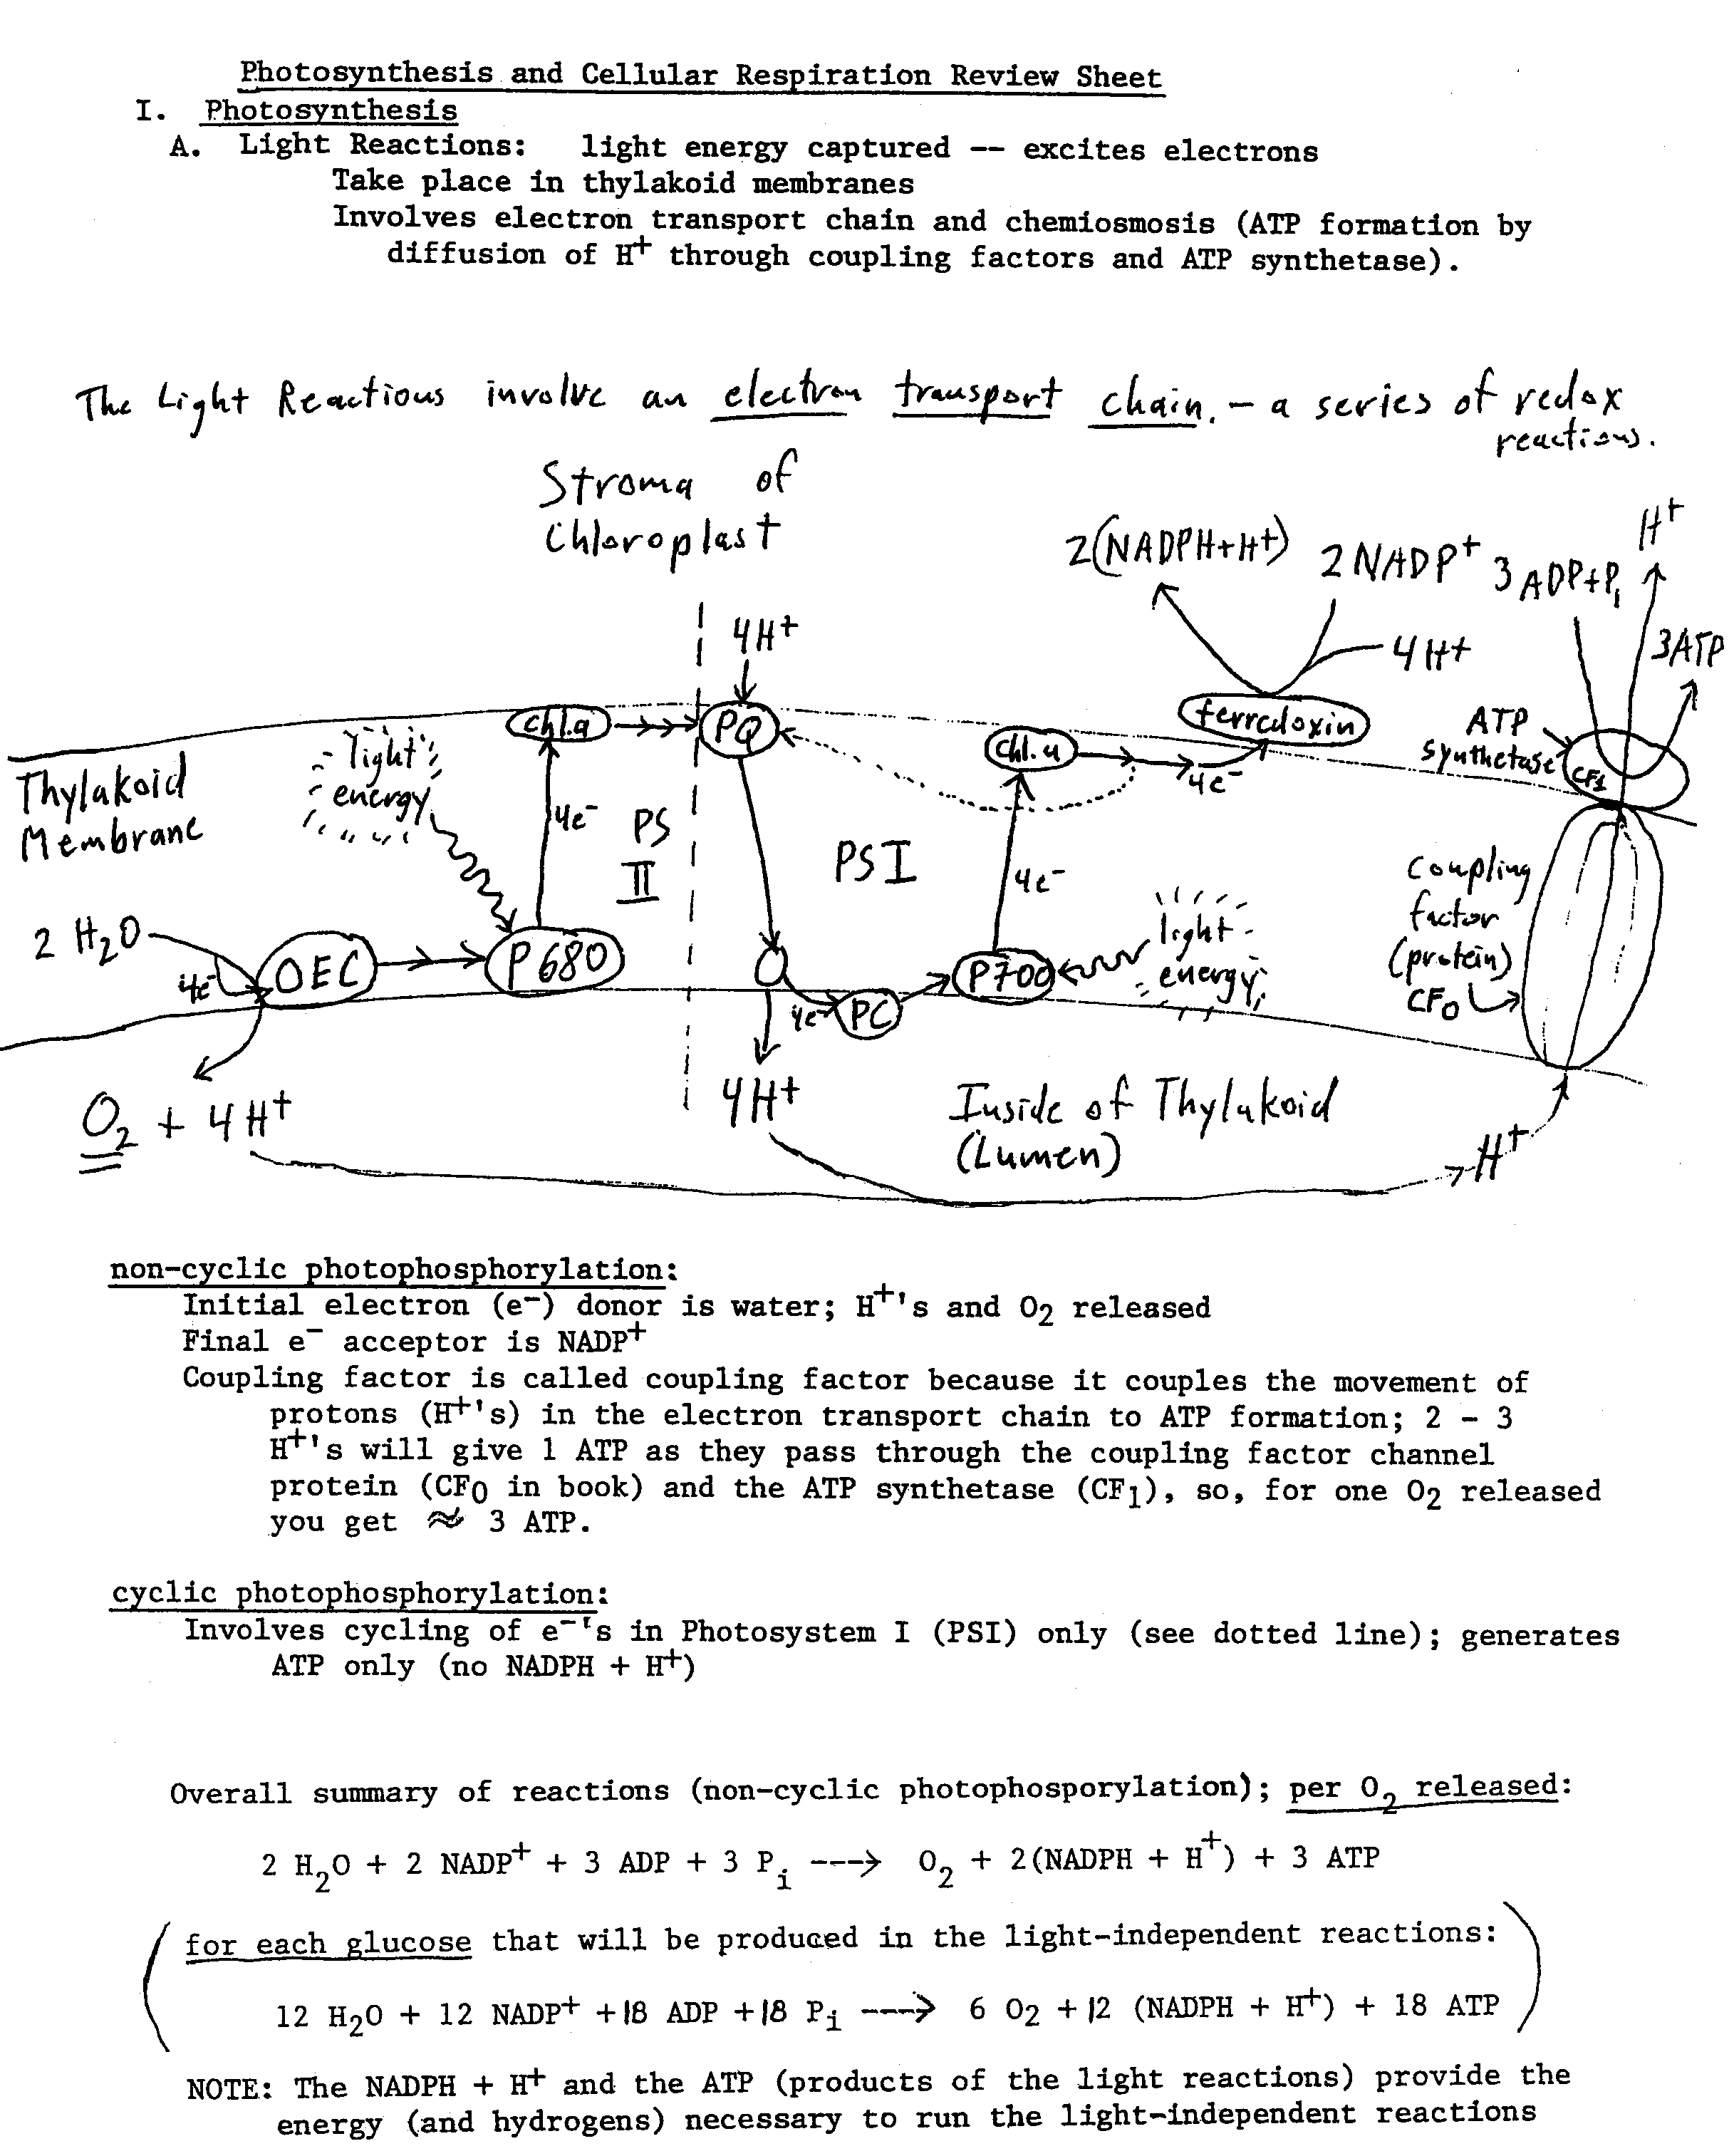 Photosynthesis and Cellular Respiration Review Sheet
I. Photosynthesis
A. Light Reactions: light energy captured -- excites electrons
Take place in thylakoid membranes
Involves electron transport chain and chemiosmosis (ATP formation by
diffusion of H+ through coupling factors and ATP synthetase).
The Light Reactions involve an electron transport chain. - a series of redox
reactions.
Stroma of
Chloroplast
2(NADPH+H+) 2 NADP+ 3 ADP+Pi H+
4H+
4H+ 3ATP
chl.a PQ chl.a ferredoxin
ATP
synthetase CF1
light
energy
Thylakoid
Membrane
4e- PS
II
PSI
4e-
4e-
light
energy
Coupling
factor
(protein)
CF0
2 H2O 4e- OEC P680
4e- PC P700
O2 + 4H+
4H+
Inside of Thylakoid
(Lumen)
H+
non-cyclic photophosphorylation:
Initial electron (e-) donor is water; H+'s and O2 released
Final e- acceptor is NADP+
Coupling factor is called coupling factor because it couples the movement of
protons (H+'s) in the electron transport chain to ATP formation; 2 - 3
H+'s will give 1 ATP as they pass through the coupling factor channel
protein (CF0 in book) and the ATP synthetase (CF1), so, for one O2 released
you get ≈ 3 ATP.
cyclic photophosphorylation:
Involves cycling of e-'s in Photosystem I (PSI) only (see dotted line); generates
ATP only (no NADPH + H+)
Overall summary of reactions (non-cyclic photophosporylation); per O2 released:
2 H2O + 2 NADP+ + 3 ADP + 3 Pi ---> O2 + 2(NADPH + H+) + 3 ATP
(for each glucose that will be produced in the light-independent reactions:
12 H2O + 12 NADP+ + 18 ADP + 18 Pi ---> 6 O2 + 12 (NADPH + H+) + 18 ATP)
NOTE: The NADPH + H+ and the ATP (products of the light reactions) provide the
energy (and hydrogens) necessary to run the light-independent reactions